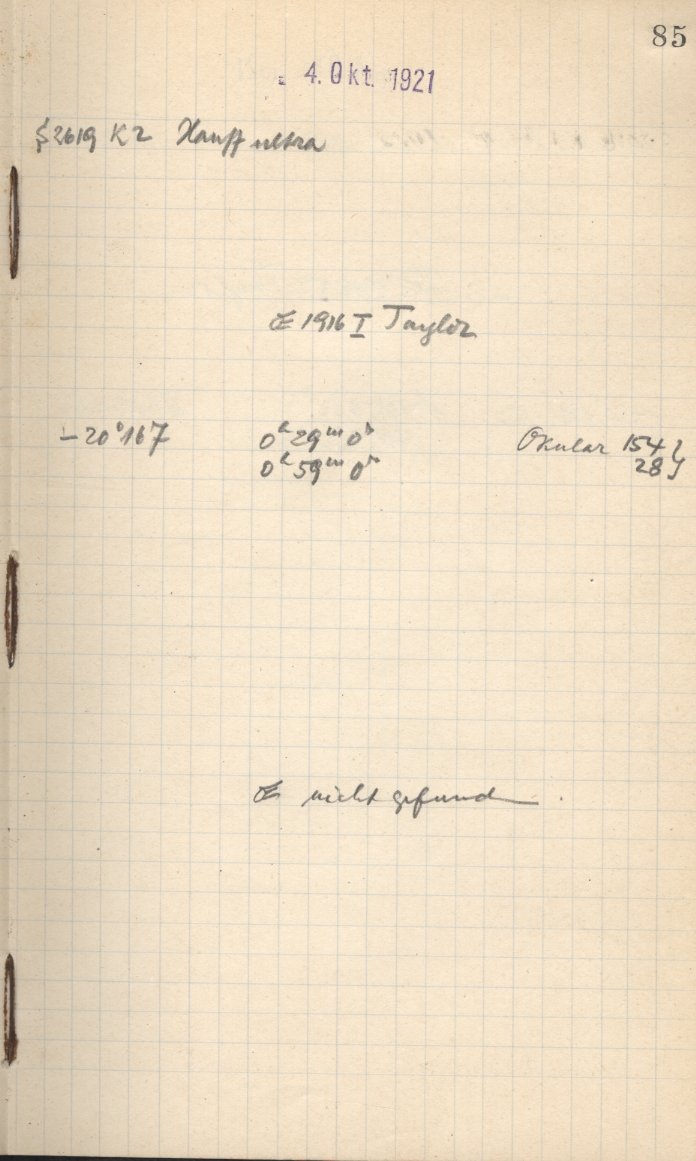 85
4. Okt. 1921
§2619 K2 Hauff ultra
☄ 1916 I Taylor
–20°167 0h29m0s Okular 154 }
0h59m0s 28 }
☄ nicht gefunden.